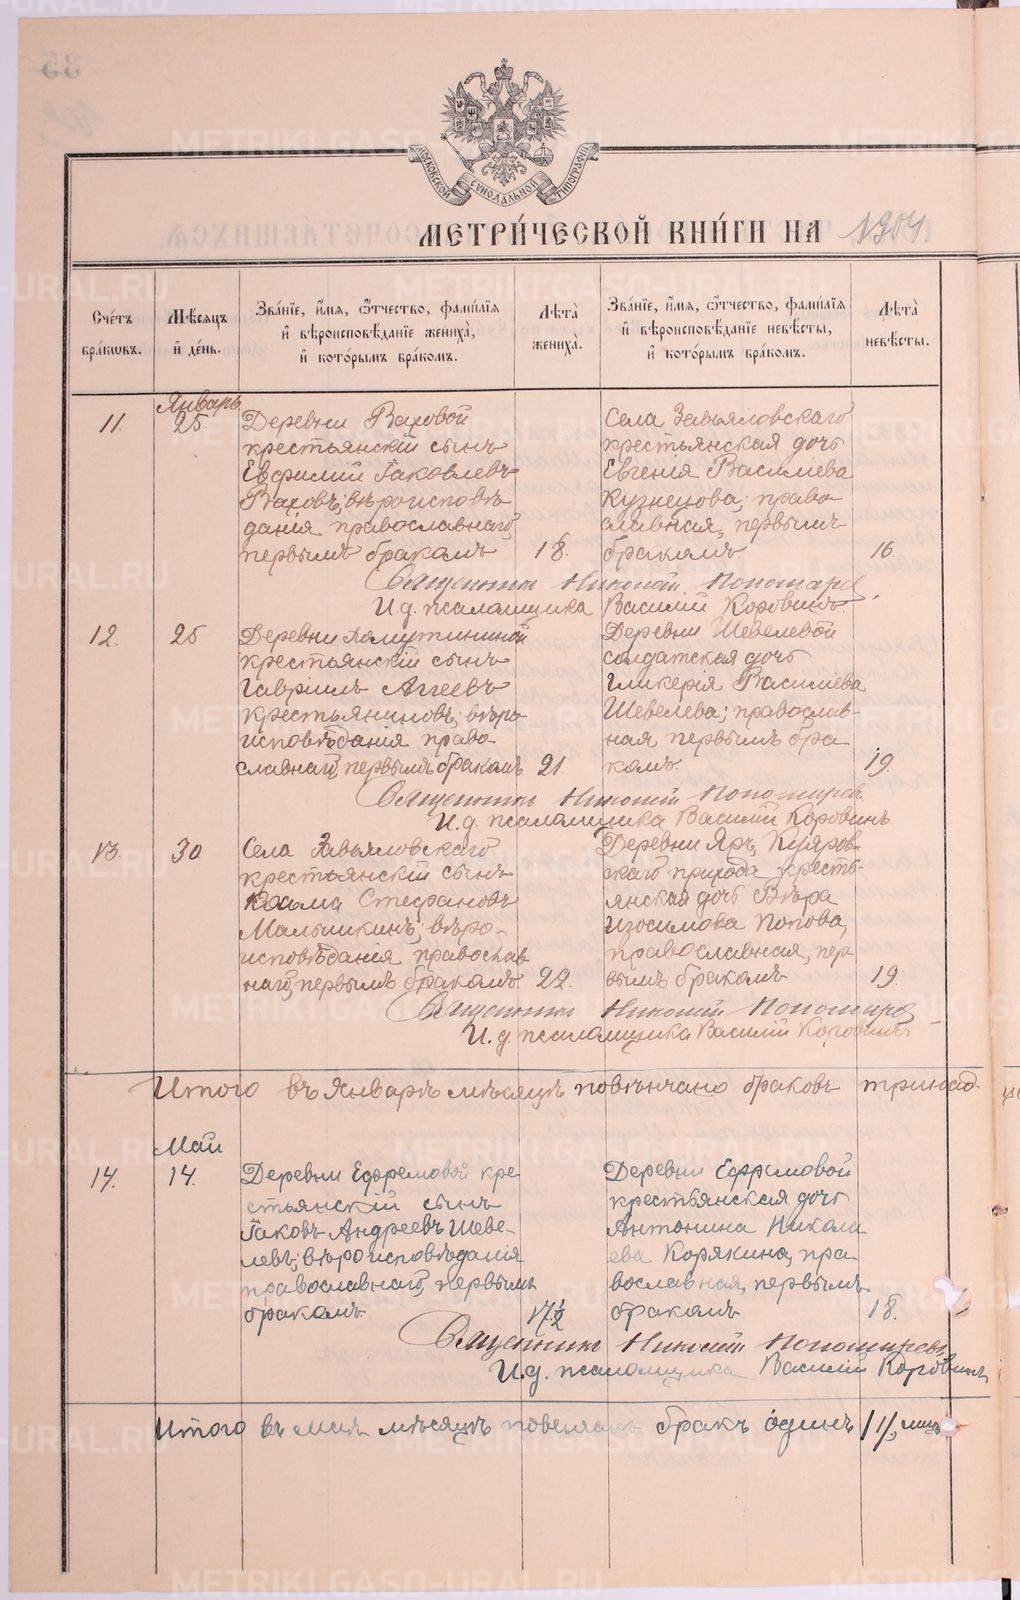 МОСКОВСКОЙ СѴНОДАЛЬНОЙ ТИПОГРАФІИ
МЕТРИ́ЧЕСКОЙ КНИ́ГИ НА 1904.
Сче́тъ бра́кωвъ.
Мѣ́сяцъ и де́нь.
Зва́нїе, и҆́мя, ѻ҆́тчество, фами́лїя и҆ вѣроисповѣ́данїе жениха̀, и҆ кото́рымъ бра́комъ.
Лѣта̀ жениха̀.
Зва́нїе, и҆́мя, ѻ҆́тчество, фами́лїя и҆ вѣроисповѣ́данїе невѣ́сты, и҆ кото́рымъ бра́комъ.
Лѣта̀ невѣ́сты.
Январь
11. 25.
Деревни Ваховой
крестьянскій сынъ
Евфимій Іаковлевъ
Ваховъ; вѣроисповѣ
данія православнаго,
первымъ бракомъ
18.
Села Завьяловскаго
крестьянская дочь
Евгенія Василиева
Кузнецова; право
славная, первымъ
бракомъ
16.
Священникъ Николай Пономарев.
И.д. псаломщика Василій Коровинъ.
12. 25
Деревни Хомутининой
крестьянскій сынъ
Гавріилъ Аггеевъ
Крестьяниновъ; вѣро
исповѣданія право
славнаго, первымъ бракомъ
21.
Деревни Шевелевой
солдатская дочь
Гликерія Василиева
Шевелева; православ-
ная первымъ бра
комъ.
19.
Священникъ Николай Пономарев.
И.д. псаломщика Василій Коровинъ.
13. 30
Села Завьяловскаго
крестьянскій сынъ
Косьма Стефановъ
Малышкинъ; вѣро-
исповѣданія православ
наго, первымъ бракомъ.
22.
Деревни Яръ,
скаго прихода, кресть-
янская дочь Вѣра
Изосимова Попова,
православная, пер
вымъ бракомъ
19.
Священникъ Николай Пономарев
И.д. псаломщика Василій Коровинъ
Итого въ Январѣ мѣсяцѣ повѣнчано браковъ тринад-
Май
14. 14.
Деревни Ефремовой кре
стьянскій сынъ
Іаковъ Андреевъ Шеве-
левъ; вѣроисповѣданія
православнаго, первымъ
бракомъ.
17 1/2
Деревни Ефремовой
крестьянская дочь
Антонина Никола
ева Корякина, пра
вославная, первымъ
бракомъ
18.
Священникъ Николай Пономаревъ
И.д. псаломщика Василій Коровинъ
Итого въ маѣ мѣсяцѣ бракъ одинъ /1/,
METRIKI.GASO-URAL.RU